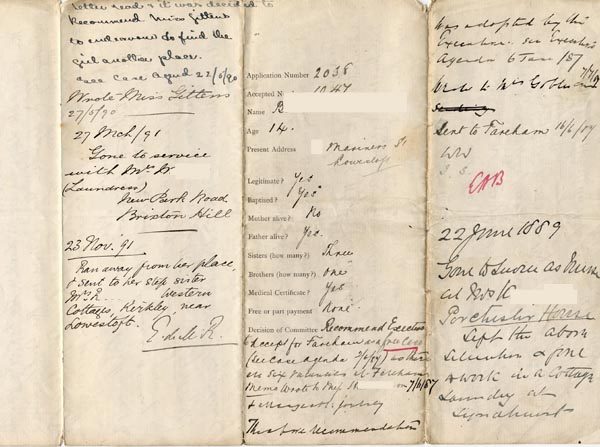 letter read & it was decided to
Recommend Miss Gittens
to endeavour to find the
girl another place.
see Case Agend 22/5/90
Wrote Miss Gittens
27/5/90
27 Mch/91
Gone to service
with Mrs W
(Laundress)
New Park Road
Brixton Hill
23 Nov. 91
Ran away from her place,
& sent to her step sister
Mrs R Western
Cottages, Kirkley, near
Lowestoft.
Application Number 2036
Accepted No
Name B
Age 14.
Present Address Mariners St
Lowestoft
Legitimate? Yes
Baptised? Yes
Mother alive? No
Father alive? Yes.
Sisters (how many?) Three
Brothers (how many?) one
Medical Certificate? Yes
Free or part payment None.
Decision of Committee Recommend Executive
to accept for Fareham as a free case
(See Case Agenda) as there
are six vacancies at Fareham
Memo Wrote to 7/6/87
journey
The above recommendation
was adopted by the
Executive. see Executive
Agenda 6 June /87
Wrote to Mrs
Sent to Fareham 16/6/87
22 June 1889
Gone to Service as Nurse
at Mrs K
Porchester House
Left the above
situation & gone
to work in a Cottage
Laundry at
Lyndhurst